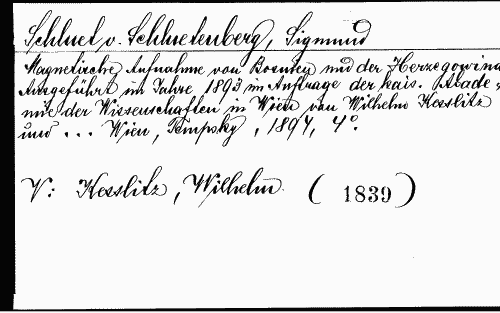 Schluet v. Schluetenberg, Sigmund
Magnetische Aufnahme von Bosnien und der Herzegowina
Ausgeführt im Jahre 1893 im Auftrage der kais. Akade-
mie der Wissenschaften in Wien von Wilhelm Kesslitz
und ... Wien, Tempsky, 1894, 4°.
V: Kesslitz, Wilhelm. (1839)